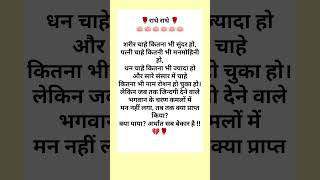 🌹राधे राधे 🌹
🪷🪷🪷🪷🪷🪷
शरीर चाहे कितना भी सुंदर हो,
पत्नी चाहे कितनी भी मनमोहिनी
हो,
धन चाहे कितना भी ज्यादा हो
और सारे संसार में चाहे
कितना भी नाम रोशन हो चुका हो।
लेकिन जब तक जिन्दगी देने वाले
भगवान के चरण कमलों में
मन नहीं लगा, तब तक क्या प्राप्त
किया?
क्या पाया? अर्थात सब बेकार है !!
💔🌹
धन चाहे
और स
कितना भी
लेकिन जब
भगव
मन नहीं ल
ज्यादा हो
में चाहे
हो चुका हो।
देने वाले
लों में
क्या प्राप्त